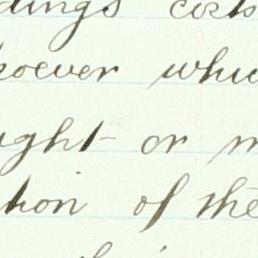 dings costs
soever whic
ught or m
tion of the